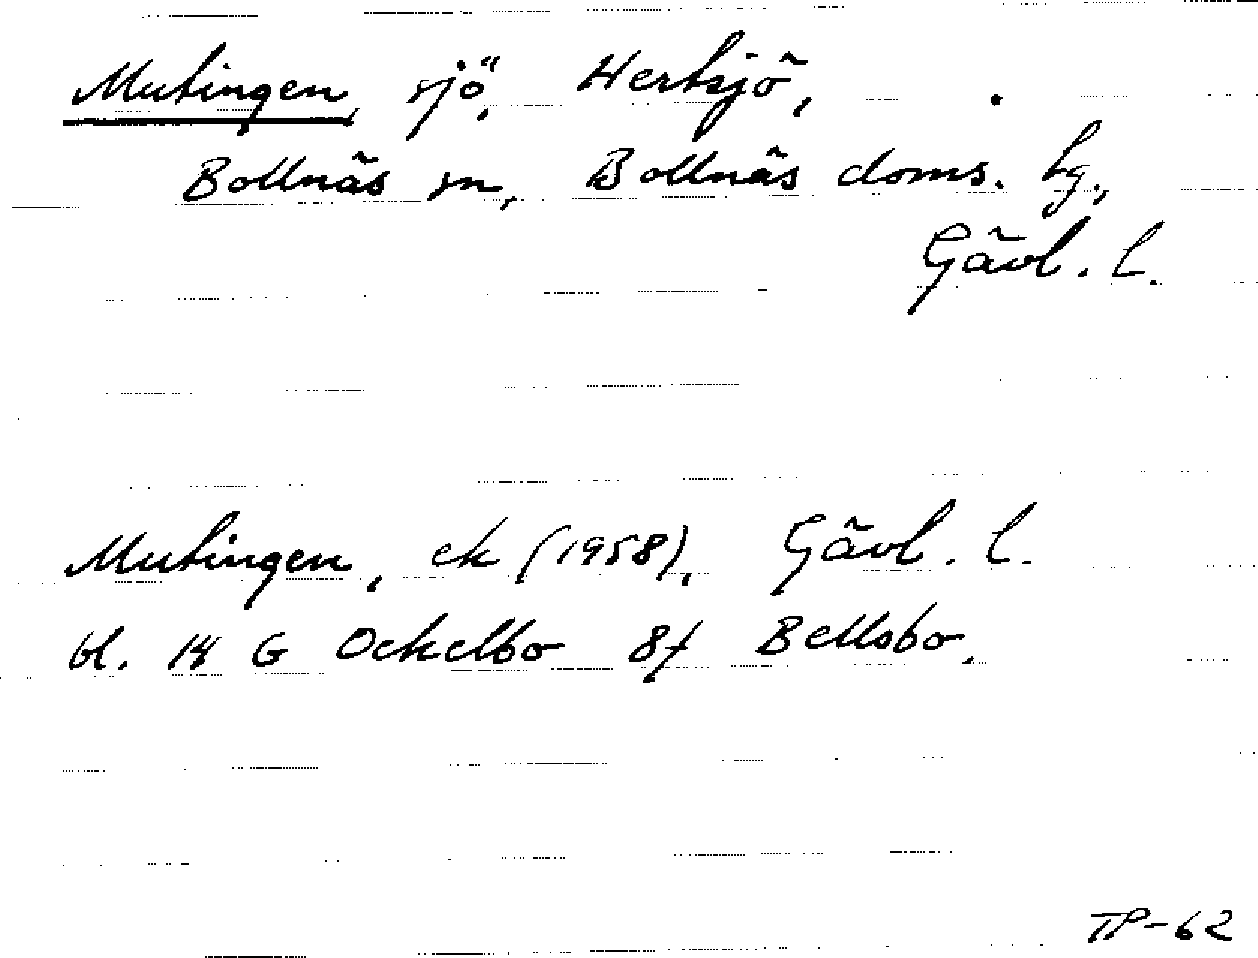 Mutingen, sjö, Hertsjö,
Bollnäs sn, Bollnäs doms. hg.,
Gävl. l.
Mutingen, ek (1958), Gävl. l.
bl. 14 G Ockelbo 8f Bellsbo.
TP-62